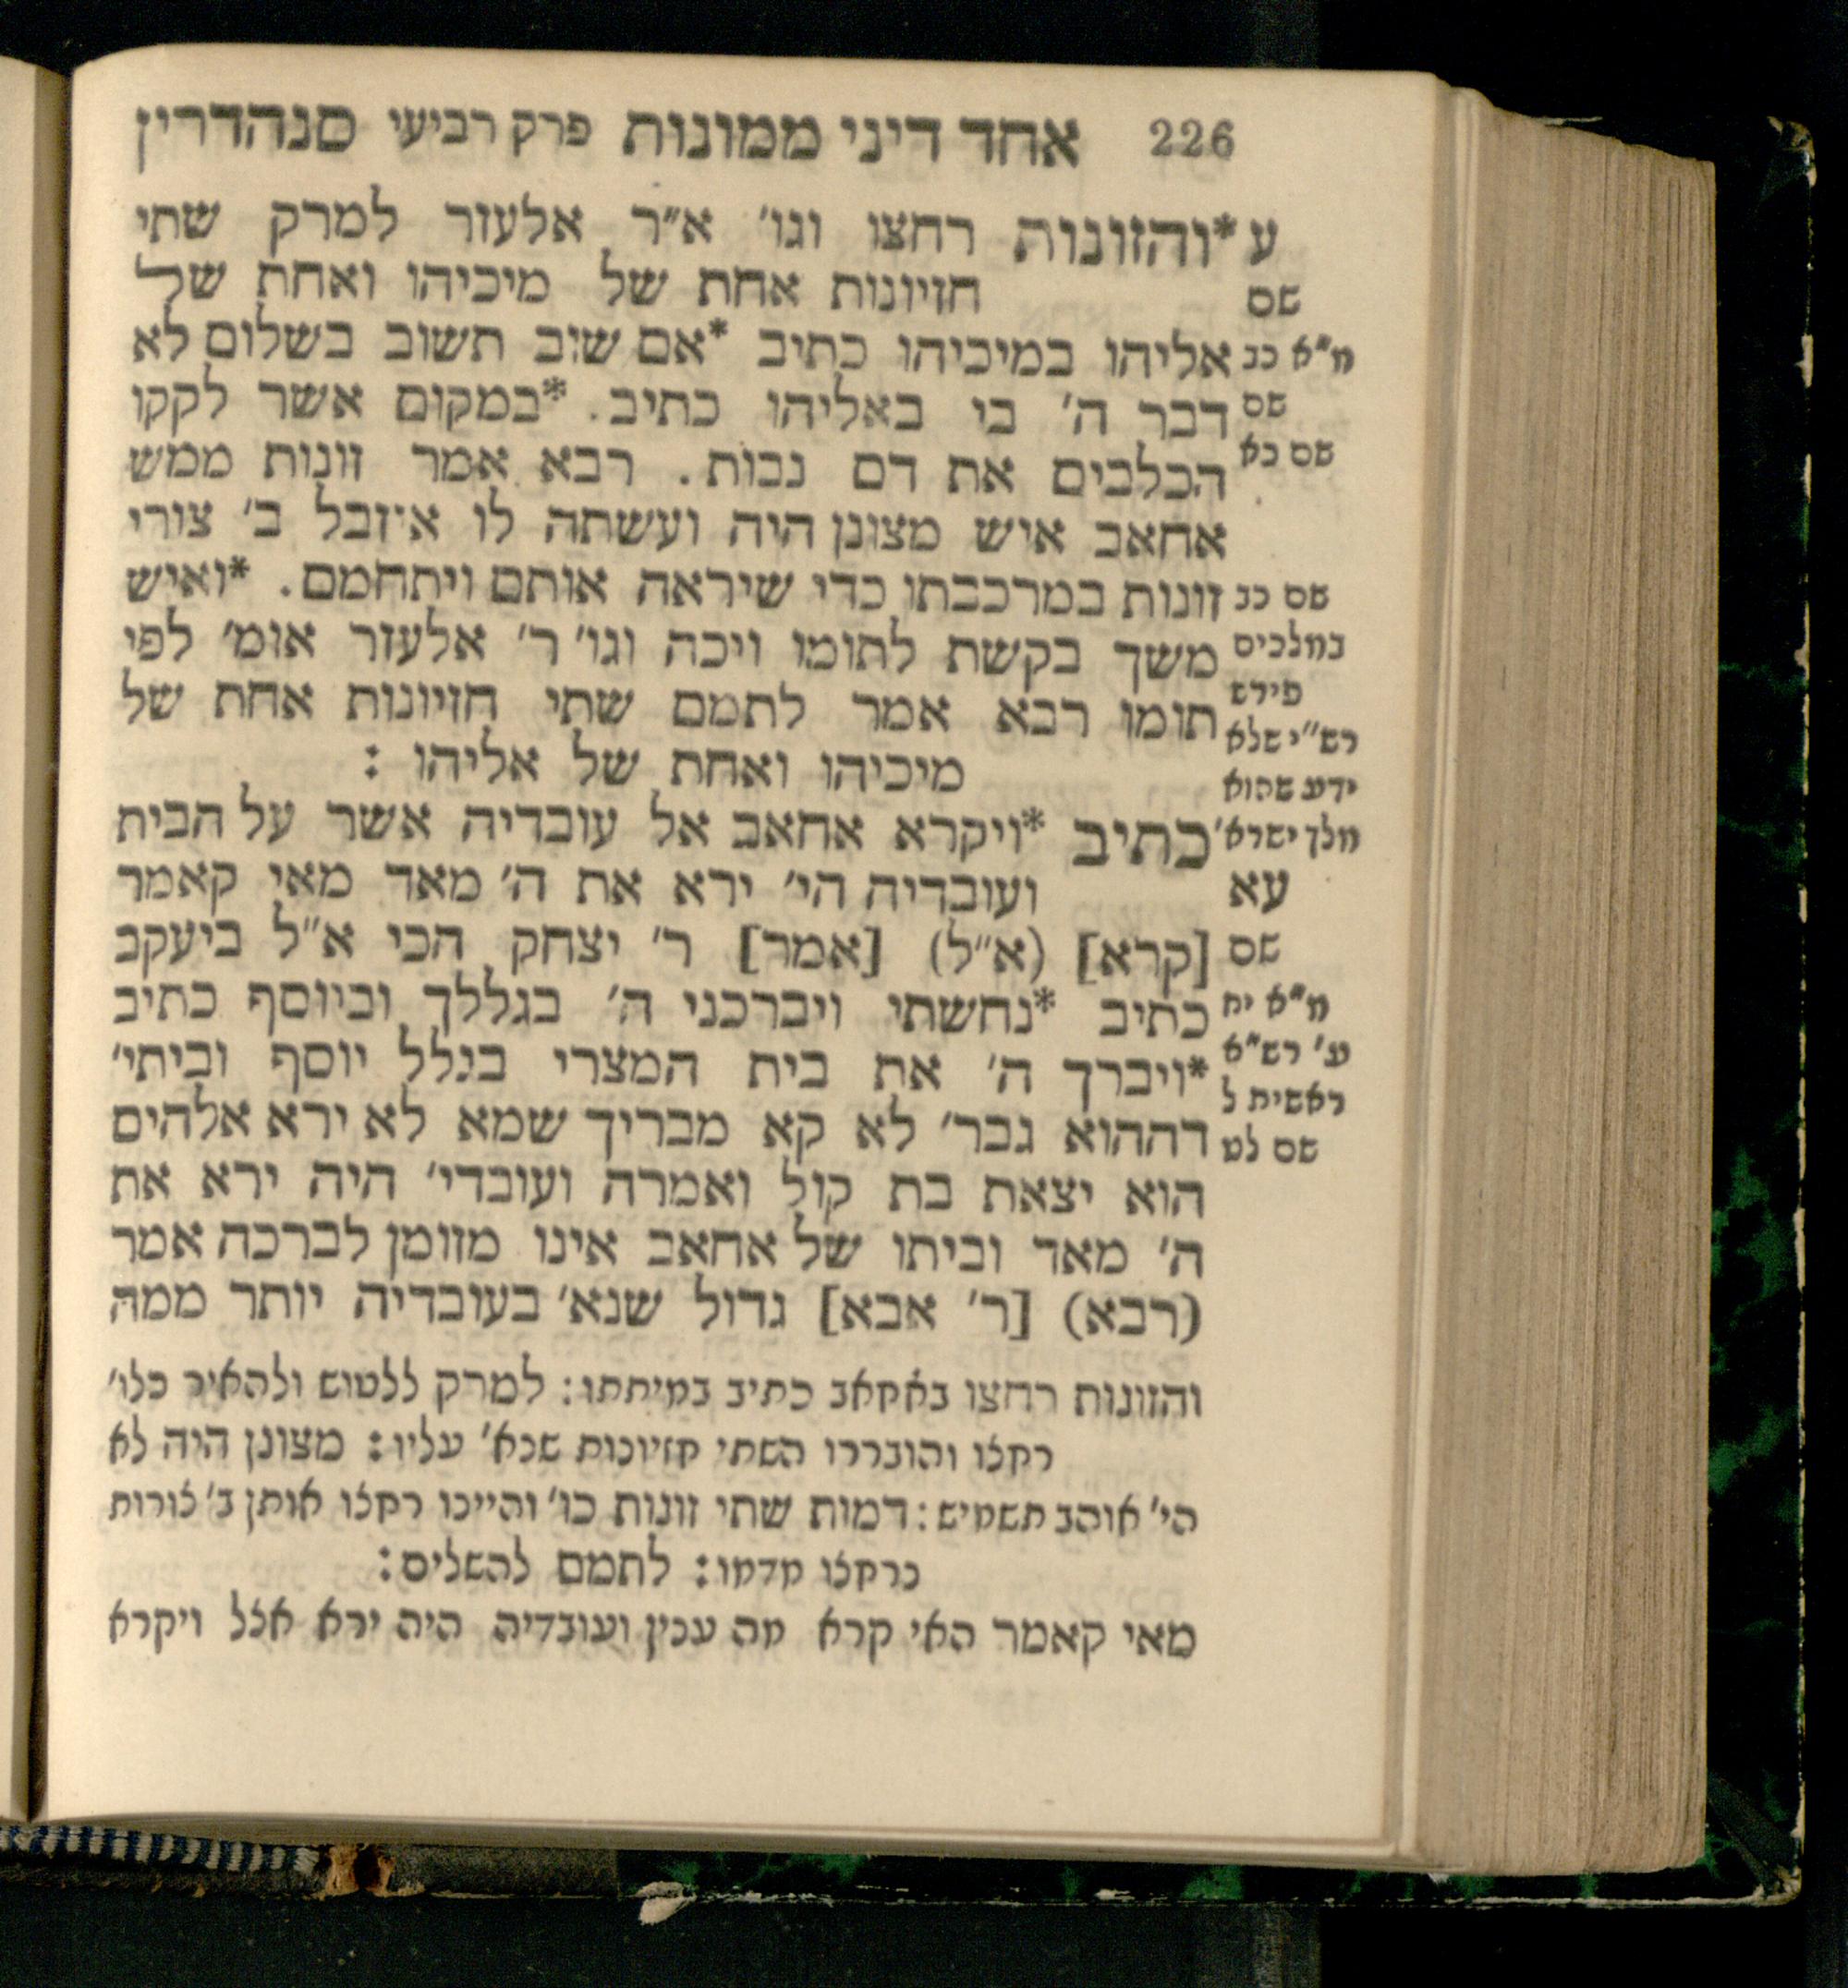 226 אחד דיני ממונות פרק רביעי סנהדרין
ע *והזונות רחצו וגו׳ א״ר אלעזר למרק שתי
שם חזיונות אחת של מיכיהו ואחת של
מ״א כב אליהו במיכיהו כתיב *אם שוב תשוב בשלום לא
שם דבר ה׳ בי באליהו כתיב. *במקום אשר לקקו
שם כא הכלבים את דם נבות. רבא אמר זונות ממש
אחאב איש מצונן היה ועשתה לו איזבל ב׳ צורי
שם כב זונות במרכבתו כדי שיראה אותם ויתחמם. *ואיש
במלכים משך בקשת לתומו ויכה וגו׳ ר׳ אלעזר אומ׳ לפי
פירש
תומו רבא אמר לתמם שתי חזיונות אחת של
רש״י שלא
מיכיהו ואחת של אליהו :
ידע שהוא
מלך ישרא׳ כתיב *ויקרא אחאב אל עובדיה אשר על הבית
עא ועובדיה הי׳ ירא את ה׳ מאד מאי קאמר
שם [קרא] (א״ל) [אמר] ר׳ יצחק הכי א״ל ביעקב
מ״א יח כתיב *נחשתי ויברכני ה׳ בגללך וביוסף כתיב
ע׳ רש״א *ויברך ה׳ את בית המצרי בגלל יוסף וביתי׳
ראשית ל
שם לט דההוא גבר׳ לא קא מבריך שמא לא ירא אלהים
הוא יצאת בת קול ואמרה ועובדי׳ היה ירא את
ה׳ מאד וביתו של אחאב אינו מזומן לברכה אמר
(רבא) [ר׳ אבא] גדול שנא׳ בעובדיה יותר ממה
והזונות רחצו באחאב כתיב במיתתו: למרק ללטוש ולהאיר כלו׳
רחצו והובררו השתי חזיונות שנא׳ עליו: מצונן היה לא
הי׳ אוהב תשמיש: דמות שתי זונות כו׳ והיינו רחצו אותן ב׳ צורות
נרחצו מדמו: לתמם להשלים:
מאי קאמר האי קרא מה ענין ועובדיה היה ירא אצל ויקרא